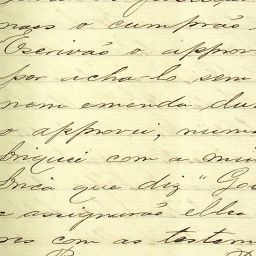 mos o cumprão
Escrivão o approv
por acha-lo sem
nem emenda du
o approvei, nume
briquei com a min
brica que diz "Go
e assignarão elles
res com as testem